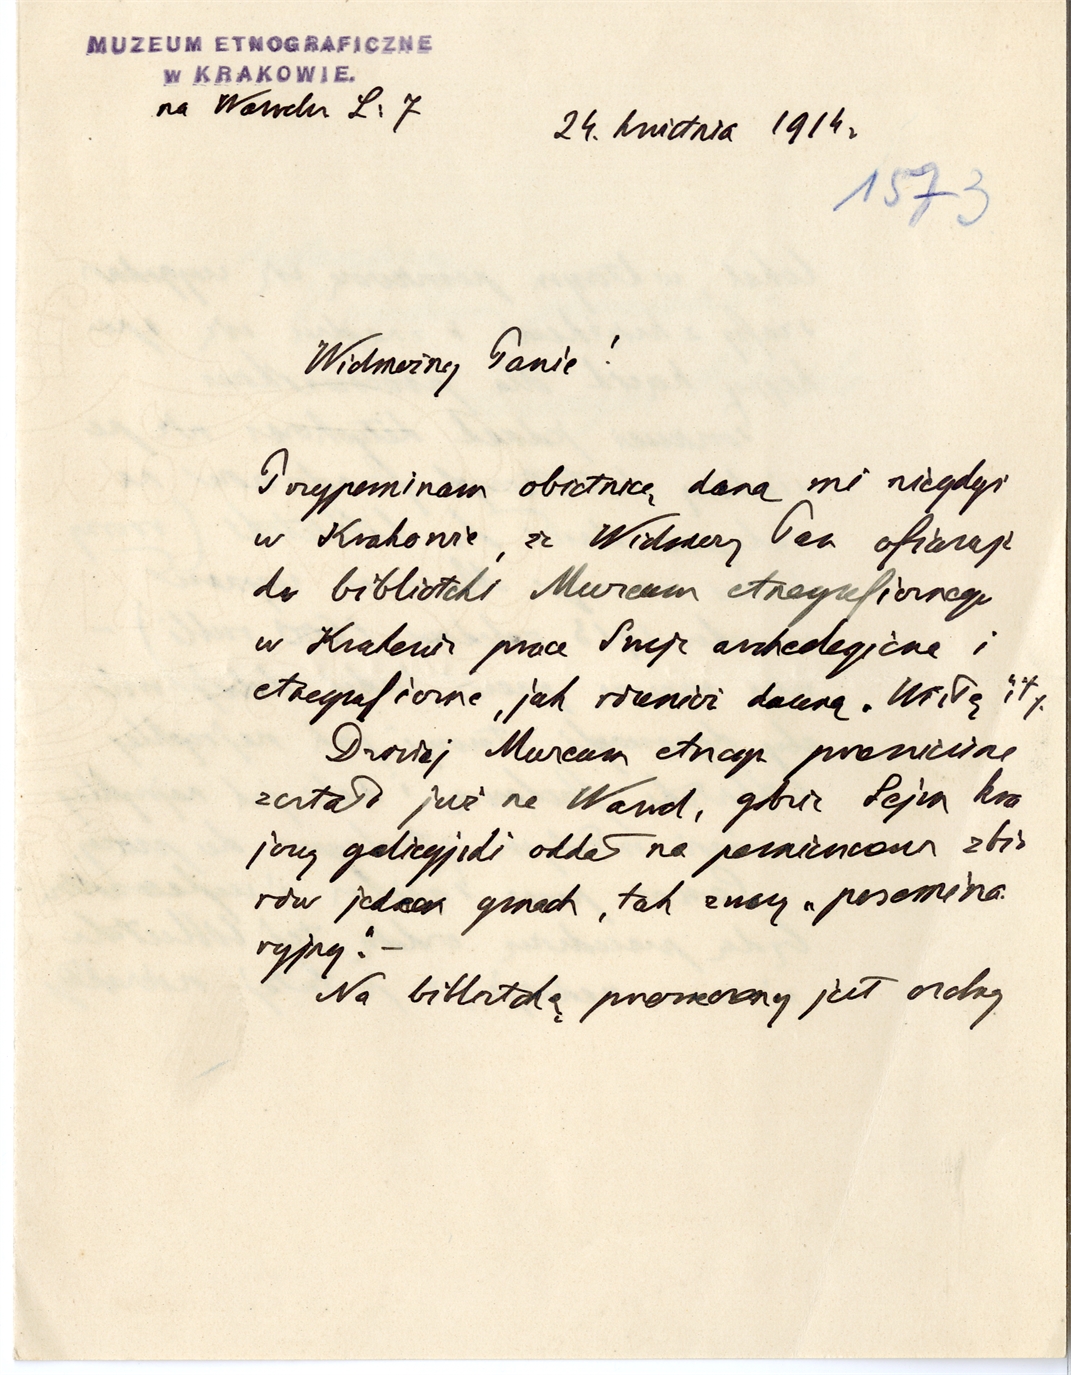 MUZEUM ETNOGRAFICZNE
W KRAKOWIE.
na Wawelu L: 7
24. kwietnia 1914 r.
1573
Wielmożny Panie!
Przypominam obietnicę daną mi niegdyś
w Krakowie, że Wielmożny Pan ofiaruje
do biblioteki Muzeum etnograficznego
w Krakowie prace Swoje archeologiczne i
etnograficzne, jak również dawną „Wisłę" itp.
Dzisiaj Muzeum etnogr. przeniesione
zostało już na Wawel, gdzie Sejm kra
jowy galicyjski oddał na pomieszczenie zbio
rów jeden gmach, tak zwany „poseminar
ryjny". —
Na bibliotekę przeznaczony jest osobny